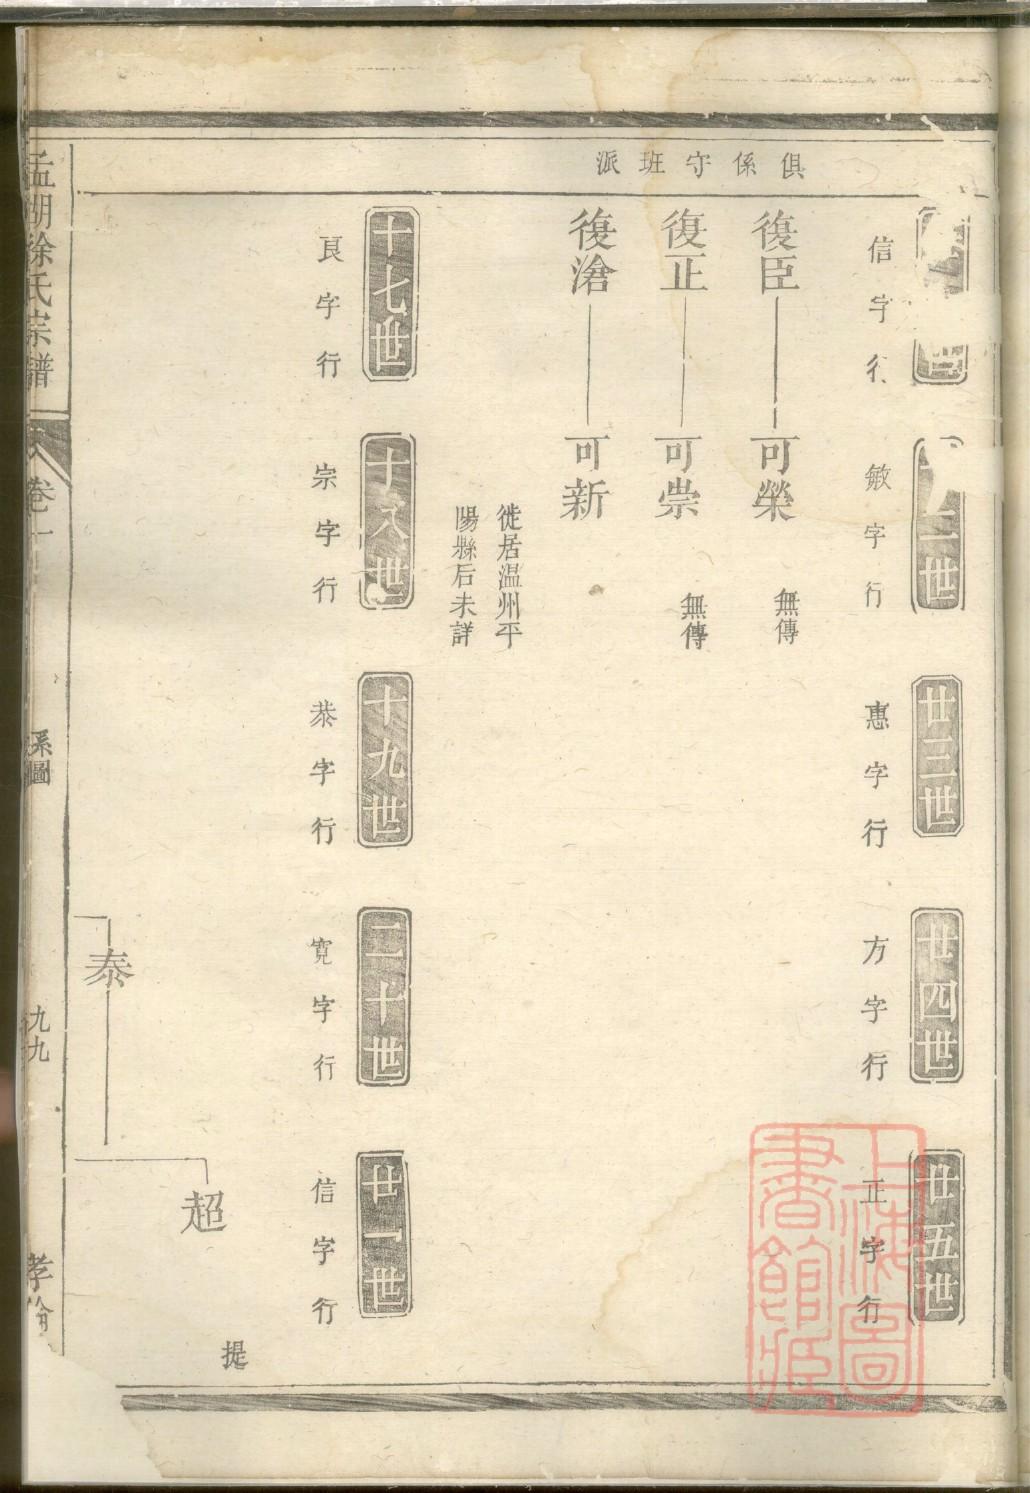 俱係守班派
信字行
敏字行
廿三世
惠字行
廿四世
方字行
廿五世
正字行
復臣
可榮
無傳
復正
可崇
無傳
復滄
可新
徙居温州平
陽縣后未詳
十七世
良字行
十八世
宗字行
十九世
恭字行
二十世
寬字行
廿一世
信字行
提
超
泰
孟湖徐氏宗譜
卷一
系圖
九九
孝
上海圖
書館藏